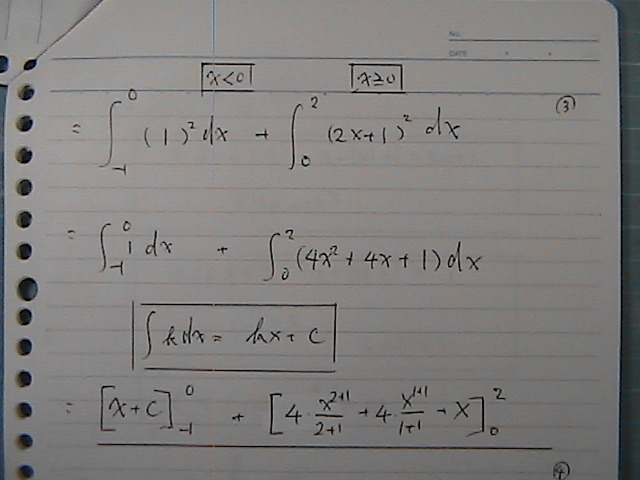 NO.
DATE
x<0 x≥0
③
= ∫₋₁⁰ (1)² dx + ∫₀² (2x+1)² dx
= ∫₋₁⁰ 1 dx + ∫₀² (4x² + 4x + 1) dx
∫ k dx = kx + c
= [x + c]₋₁⁰ + [4 · x²⁺¹/2+1 + 4 · x¹⁺¹/1+1 + x]₀²
④